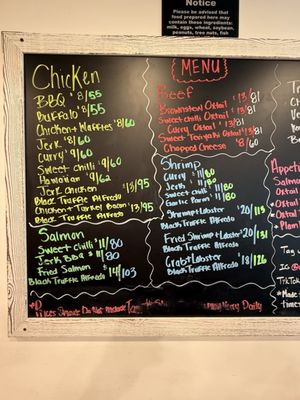 Notice
Please be advised that
food prepared here may
contain these ingredients:
milk, eggs, wheat, soybean,
peanuts, tree nuts, fish
MENU
Chicken
BBQ $8/55
Buffalo $8/55
Chicken+Waffles $8/60
Jerk $8/60
Curry $9/60
Sweet chilli $9/60
Hawaiian $9/62
Jerk Chicken
Black Truffle Alfredo $13/95
Chicken + Turkey Bacon
Black Truffle Alfredo $13/95
Salmon
Sweet chilli $11/80
Jerk BBQ $11/80
Fried Salmon
Black Truffle Alfredo $14/103
Beef
Brownstew Oxtail $13/81
Sweet chilli Oxtail $13/81
Curry Oxtail $13/81
Sweet Teriyaki Oxtail $13/81
Chopped Cheese $8/60
Shrimp
Curry $11/80
Jerk $11/80
Sweet chilli $11/80
Garlic Parm $11/80
Shrimp+Lobster
Black Truffle Alfredo $20/113
Fried Shrimp+Lobster
Black Truffle Alfredo $20/131
Crab+Lobster
Black Truffle Alfredo $18/126
Appeti
Salmon
Oxtail
Oxtail
Oxtail
Plan
Tag
IG @
TikTok
Made
times
Prices Shown Do Not Include Tax
Vary Daily